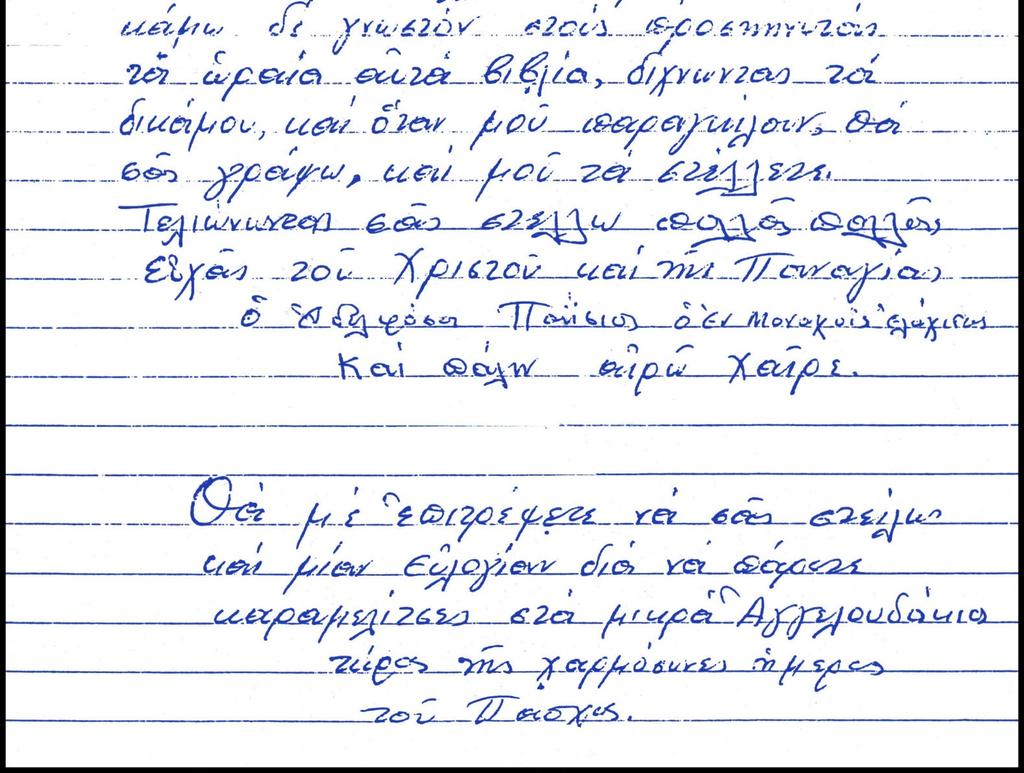 κάμω δέ γνωστόν στούς προσκηνητάς
τά ὡραία αὐτά βιβλία, διχνωντας τά
δικάμου, καί ὅταν μοῦ παραγκίλουν, θά
σᾶς γράψω, καί μοῦ τά στέλλετε.
Τελιώνωντας σᾶς στέλλω πολλές πολλές
εὐχάς τοῦ Χριστοῦ καί τῆς Παναγίας
ὁ Παήσιος ὁ ἐν Μοναχοῖς ἐλάχιστος
Καί πάλην χαῖρε.
Θά μέ ἐπιτρέψετε νά σᾶς στείλω
καί μίαν εὐλογίαν διά νά πάρετε
καραμελίτσες στά μικρά Ἀγγελουδάκια
τῆς χαρμόσυνες ἡμέρας
τοῦ Πάσχας.